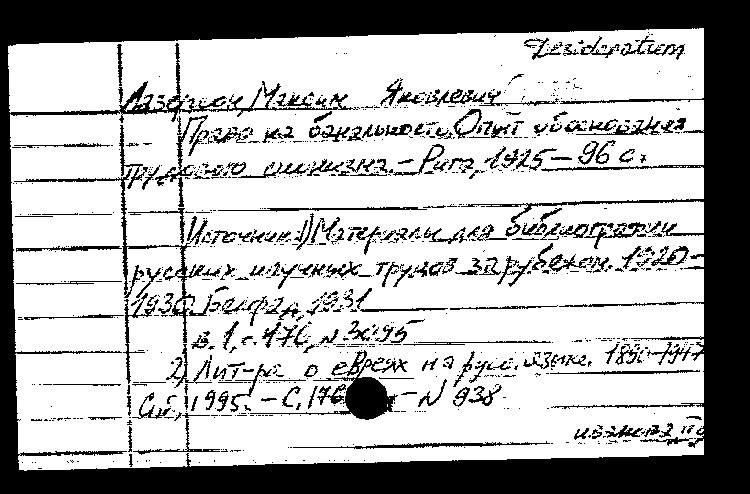 Desideratum
Лазерсон, Максим Яковлевич
Право на банальность. Опыт обоснования
трудового сионизма. - Рига, 1925 - 96 с.
Источник: 1) Материалы для библиографии
русских научных трудов за рубежом. 1920-
1930. Белград, 1931
в. 1, с. 170, N 3095
2) Лит-ра о евреях на русс. языке. 1890-1947
С.П., 1995. - С. 176 - N 938